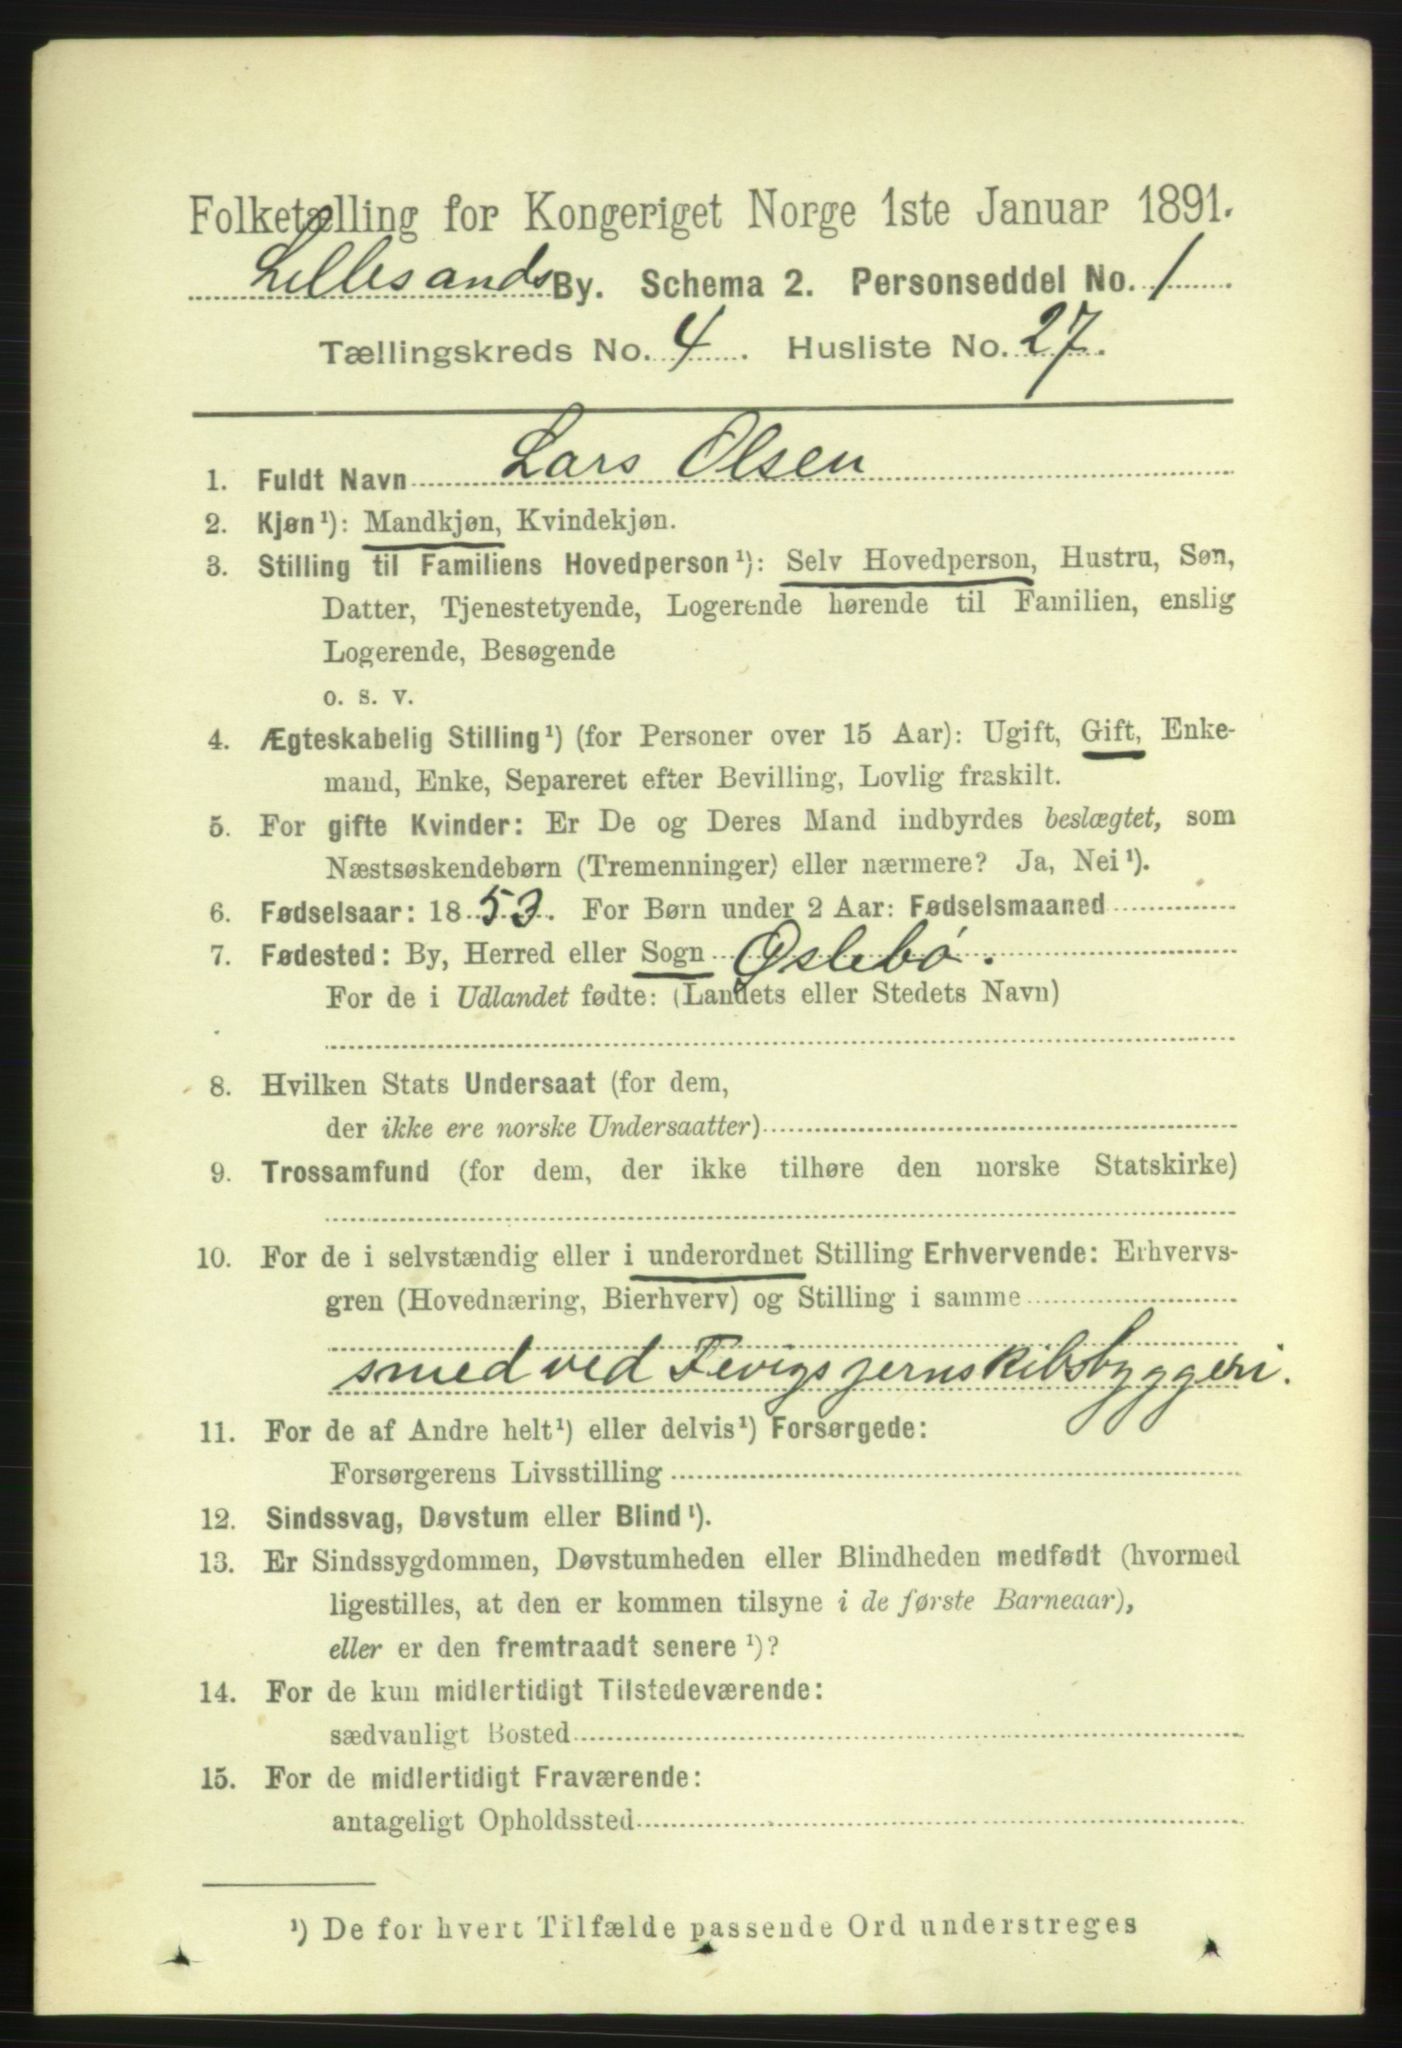 Folketælling for Kongeriget Norge 1ste Januar 1891.
Lillesands By. Schema 2. Personseddel No. 1
Tællingskreds No. 4. Husliste No. 27.
1. Fuldt Navn Lars Olsen
2. Kjøn¹): Mandkjøn, Kvindekjøn.
3. Stilling til Familiens Hovedperson¹): Selv Hovedperson, Hustru, Søn,
Datter, Tjenestetyende, Logerende hørende til Familien, enslig
Logerende, Besøgende
o. s. v.
4. Ægteskabelig Stilling¹) (for Personer over 15 Aar): Ugift, Gift, Enke-
mand, Enke, Separeret efter Bevilling, Lovlig fraskilt.
5. For gifte Kvinder: Er De og Deres Mand indbyrdes beslægtet, som
Næstsøskendebørn (Tremenninger) eller nærmere? Ja, Nei¹).
6. Fødselsaar: 1853. For Børn under 2 Aar: Fødselsmaaned
7. Fødested: By, Herred eller Sogn Øslebö.
For de i Udlandet fødte: (Landets eller Stedets Navn)
8. Hvilken Stats Undersaat (for dem,
der ikke ere norske Undersaatter)
9. Trossamfund (for dem, der ikke tilhøre den norske Statskirke)
10. For de i selvstændig eller i underordnet Stilling Erhvervende: Erhvervs-
gren (Hovednæring, Bierhverv) og Stilling i samme
smed ved Fevigs jernskibsbyggeri.
11. For de af Andre helt¹) eller delvis¹) Forsørgede:
Forsørgerens Livsstilling
12. Sindssvag, Døvstum eller Blind¹).
13. Er Sindssygdommen, Døvstumheden eller Blindheden medfødt (hvormed
ligestilles, at den er kommen tilsyne i de første Barneaar),
eller er den fremtraadt senere¹)?
14. For de kun midlertidigt Tilstedeværende:
sædvanligt Bosted
15. For de midlertidigt Fraværende:
antageligt Opholdssted
¹) De for hvert Tilfælde passende Ord understreges